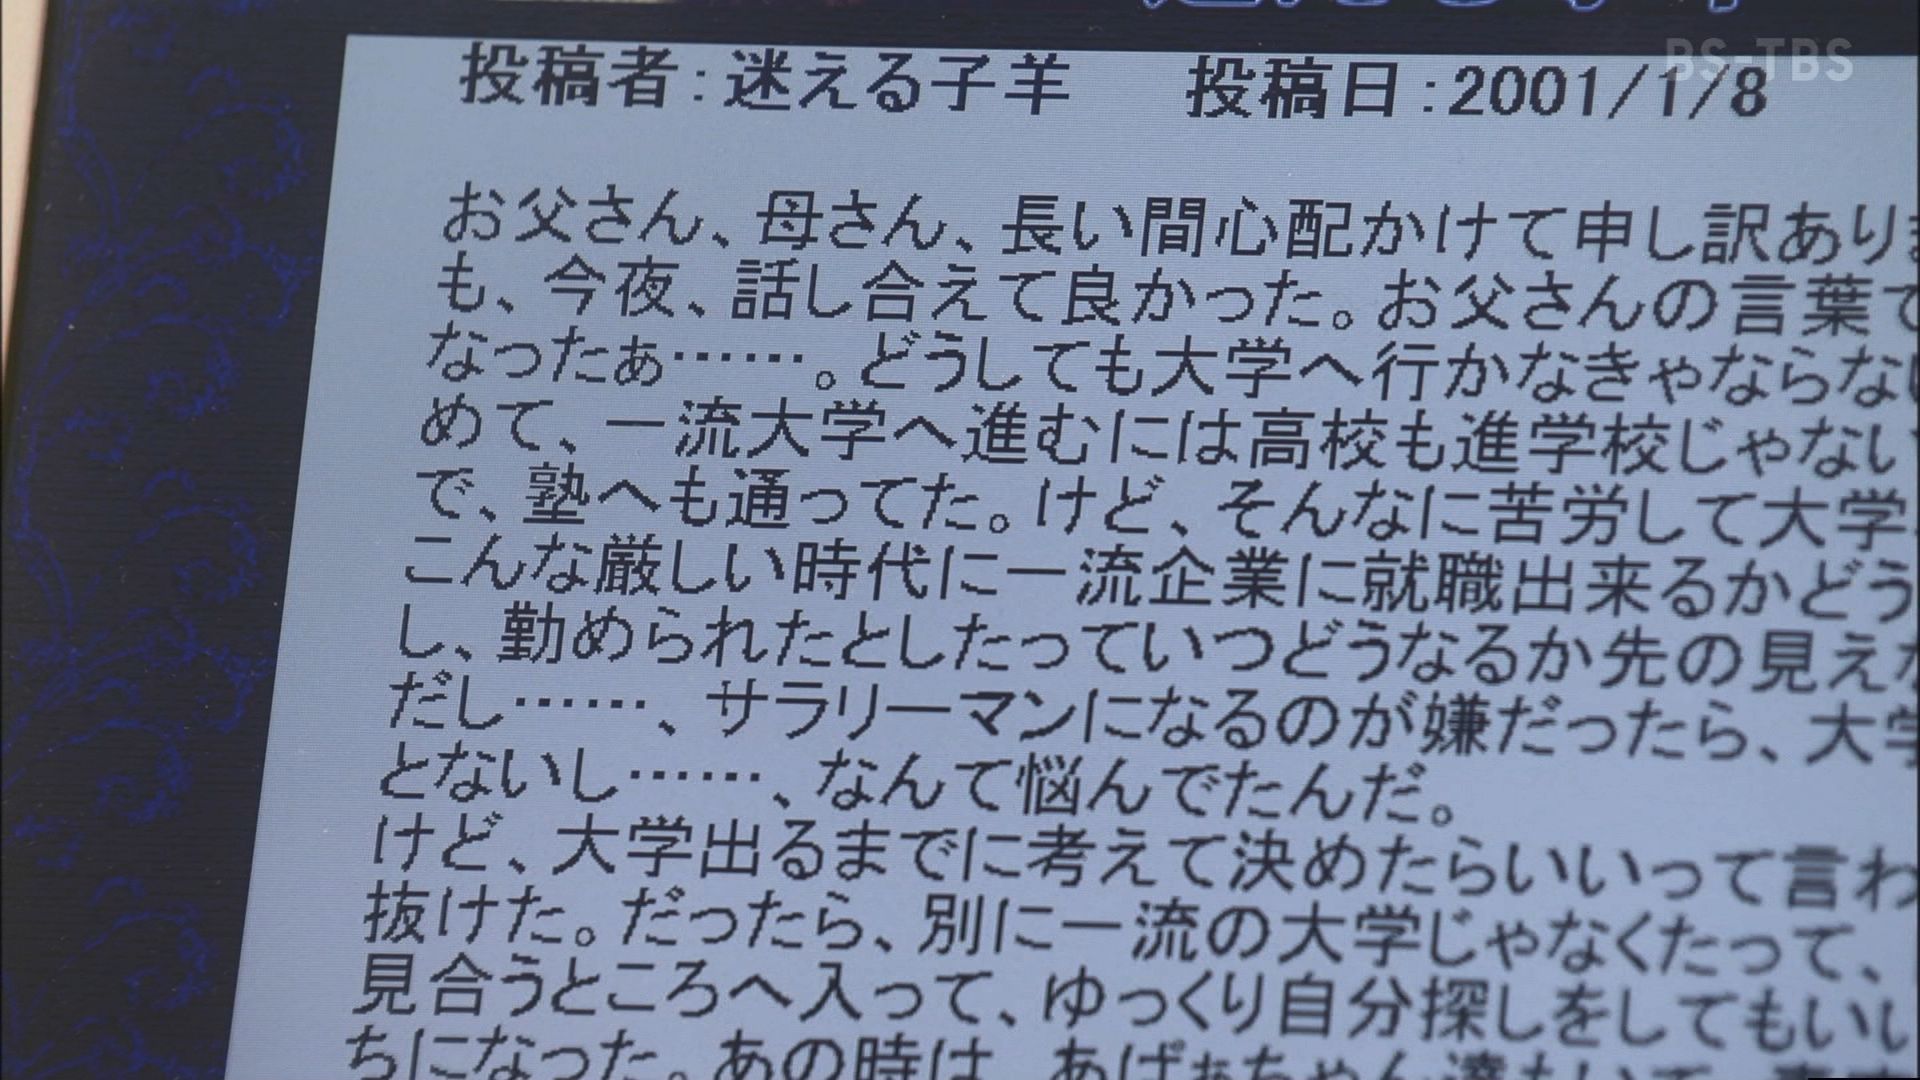 BS-TBS
投稿者：迷える子羊 投稿日：2001/1/8
お父さん、母さん、長い間心配かけて申し訳ありま
も、今夜、話し合えて良かった。お父さんの言葉で
なったぁ……。どうしても大学へ行かなきゃならない
めて、一流大学へ進むには高校も進学校じゃない
で、塾へも通ってた。けど、そんなに苦労して大学
こんな厳しい時代に一流企業に就職出来るかどう
し、勤められたとしたっていつどうなるか先の見えな
だし……、サラリーマンになるのが嫌だったら、大学
とないし……、なんて悩んでたんだ。
けど、大学出るまでに考えて決めたらいいって言わ
抜けた。だったら、別に一流の大学じゃなくたって、
見合うところへ入って、ゆっくり自分探しをしてもいい
ちになった。あの時は、あばぁちゃん達もいて、